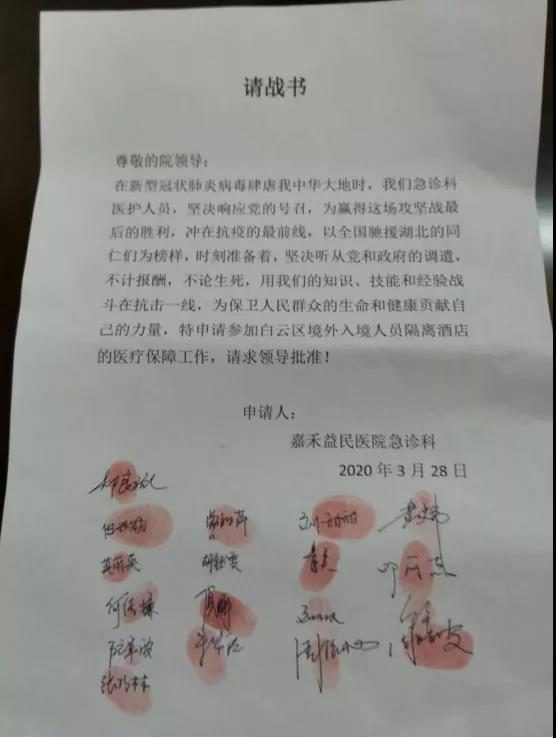 请战书
尊敬的院领导：
在新型冠状肺炎病毒肆虐我中华大地时，我们急诊科
医护人员，坚决响应党的号召，为赢得这场攻坚战最
后的胜利，冲在抗疫的最前线，以全国驰援湖北的同
仁们为榜样，时刻准备着，坚决听从党和政府的调遣，
不计报酬，不论生死，用我们的知识、技能和经验战
斗在抗击一线，为保卫人民群众的生命和健康贡献自
己的力量，特申请参加白云区境外入境人员隔离酒店
的医疗保障工作，请求领导批准！
申请人：
嘉禾益民医院急诊科
2020年3月28日